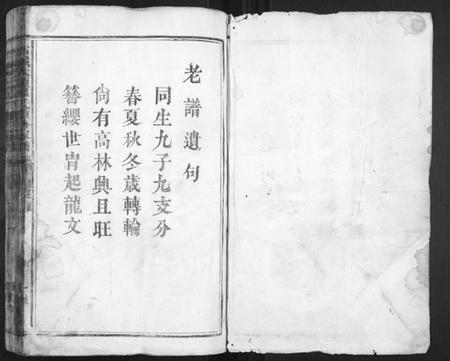 老譜遺句
同生九子九支分
春夏秋冬歲轉輪
尙有高林興且旺
簪纓世冑起龍文